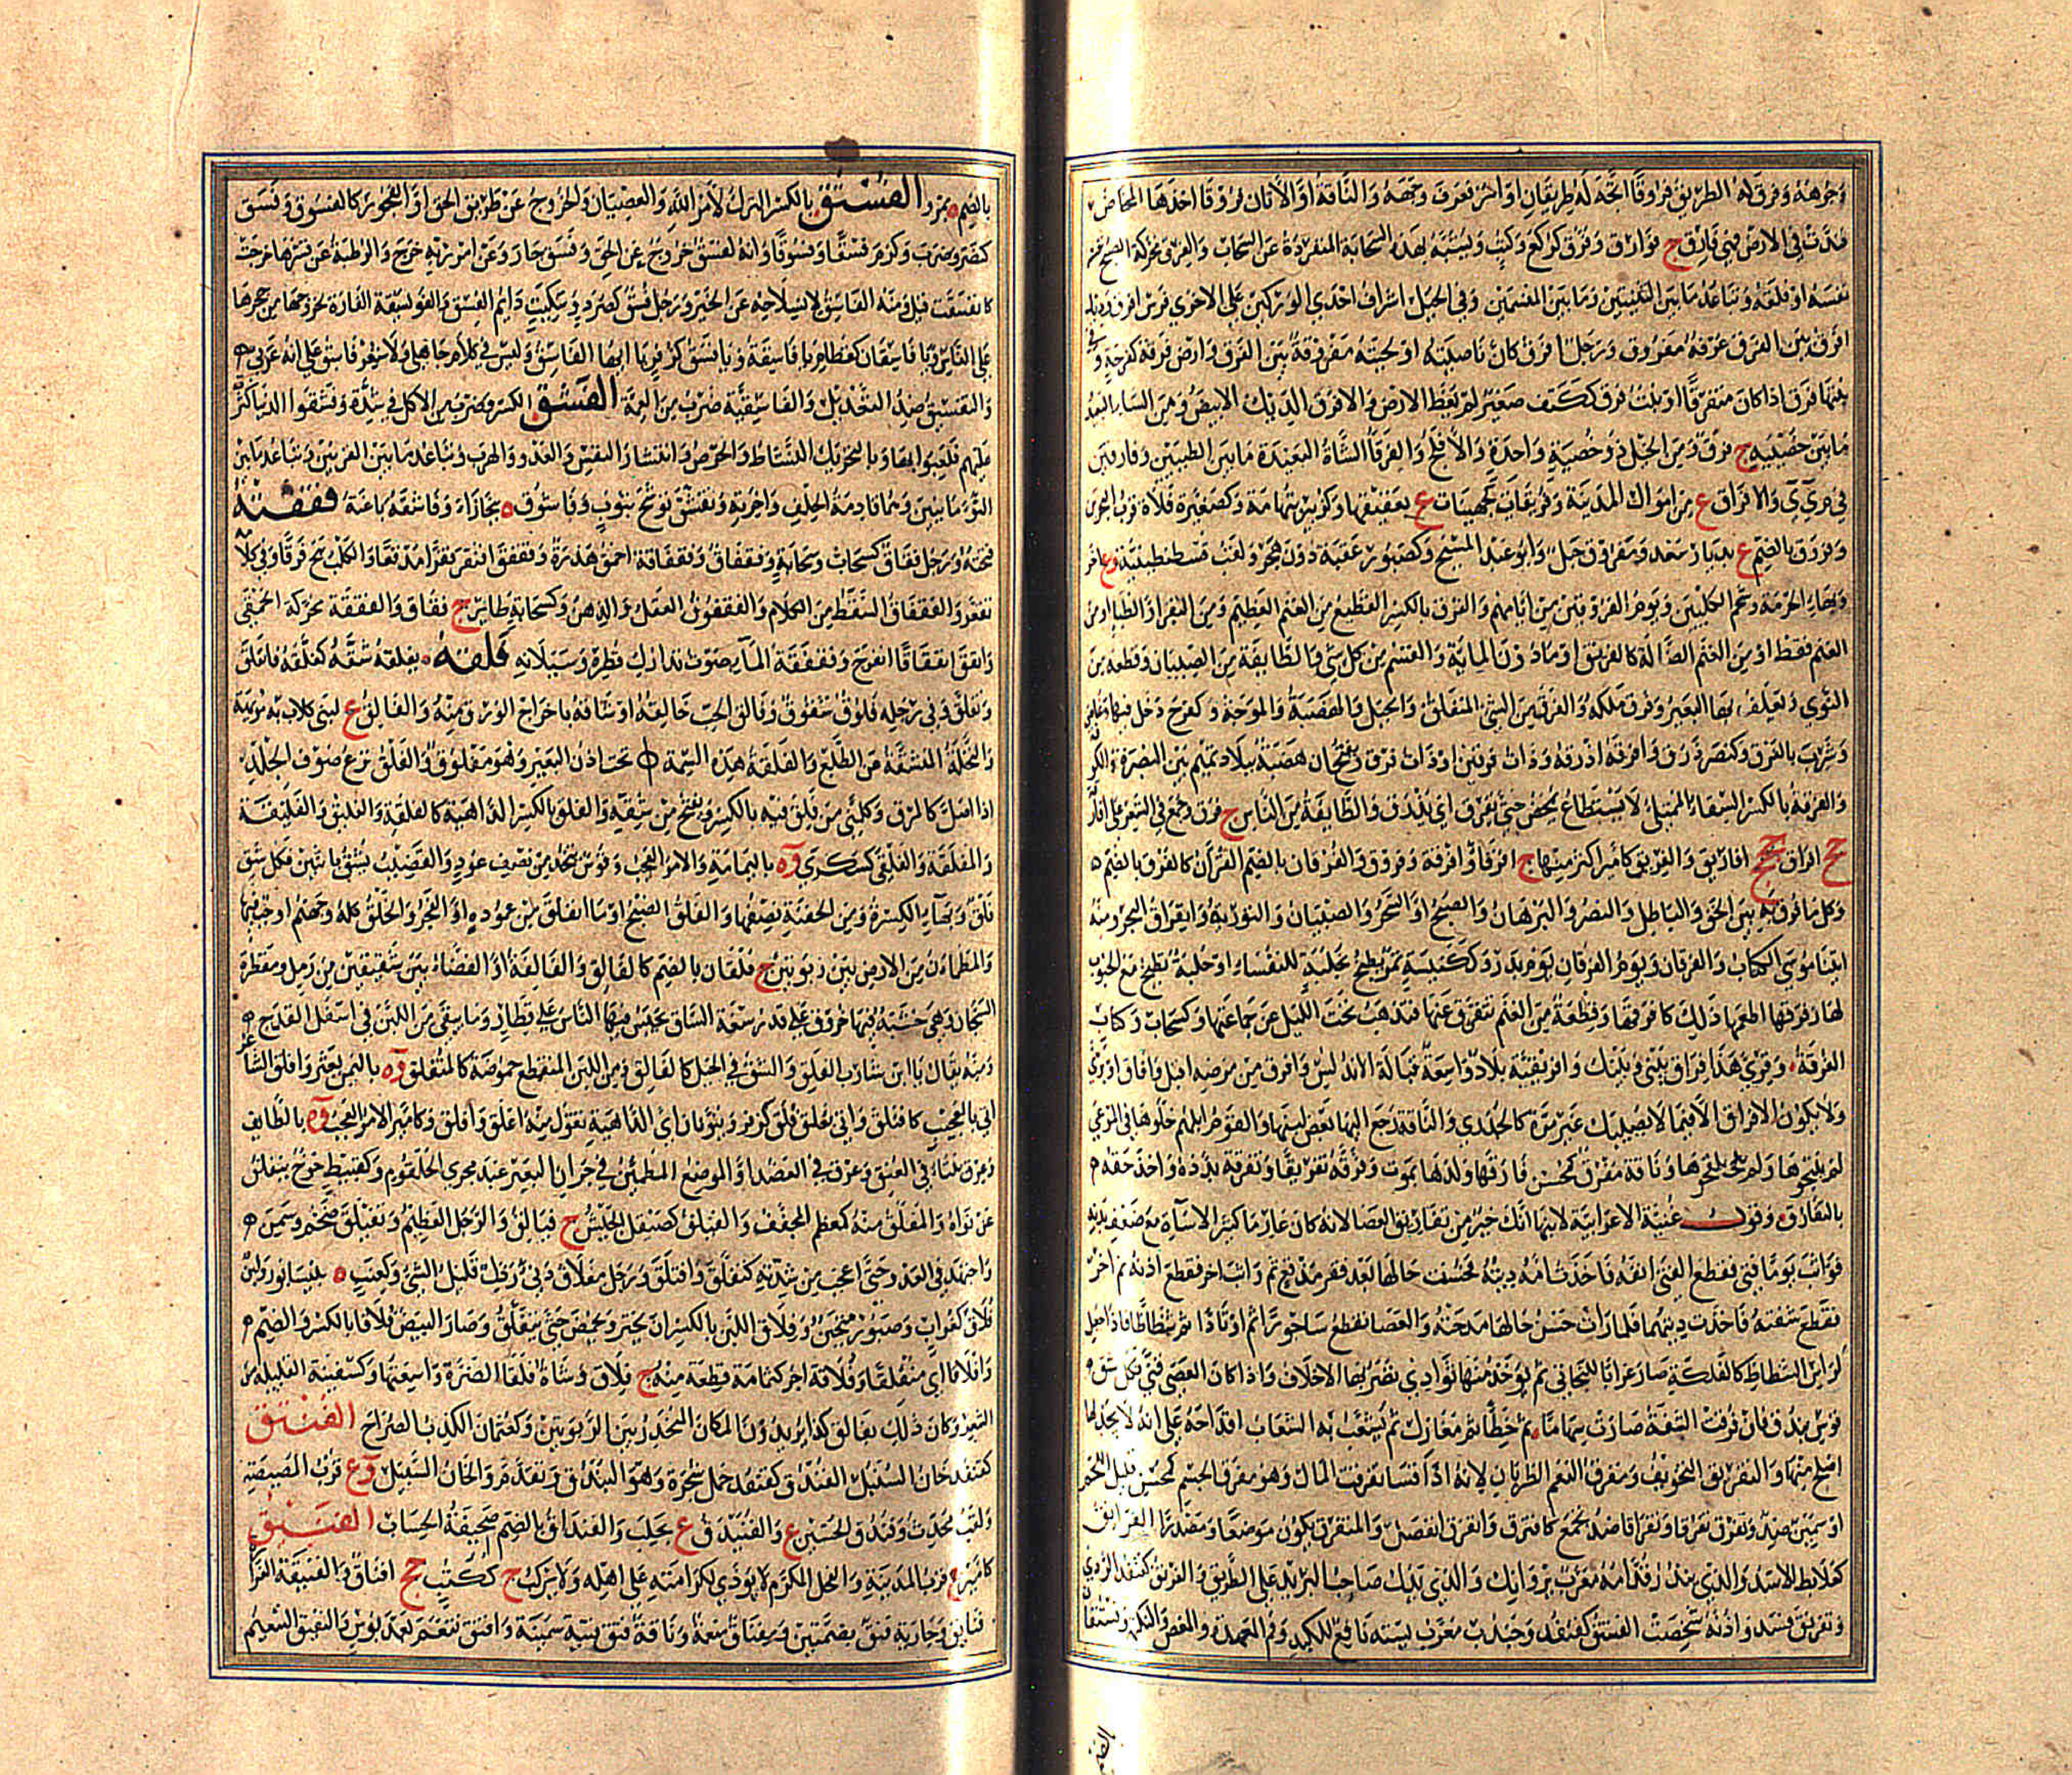 وجوهه وفرق له الطريق فروقا اتجه له طريقان او امر فعرف وجهه والناقة او الاتان فروقا اخذها المخاض
فندت في الارض فهي فارق ج فوارق وفرق كركع وكتب وتشبه بهذه السحابة المنفردة عن السحاب والفرق محركة الصبح
نفسه او فلقه وتباعد ما بين الثنيتين وما بين المنسمين وفي الخيل اشراف احدى الوركين على الاخرى فرس افرق
افرق بين الفرق عرفه مفروق ورجل افرق كان ناصيته او لحيته مفروقة بين الفرق وارض فرقة كفرحة
نبتها فرق اذا كان متفرقا او نبت فرق ككتف صغير لم يغط الارض والافرق الديك الابيض ومن الشاء البعيد
ما بين خصييه ج فرق ومن الخيل ذو خصية واحدة والافلج والفرقاء الشاة البعيدة ما بين الطبيين وفارقين
في م ي ي والافراق ع من اموال المدينة وفريقات كجهينات ع بعقيقها وكزبير بتهامة وكصغيرة فلاة قرب البحرين
وفروق بالضم ع بديار سعد ومفروق جبل وابو عبد المسيح وكصبور عقبة دون هجر ولقب قسطنطينية وع اخر
وبهاء الحرمة وشحم الكليتين ويوم الفروقين من ايامهم والفرق بالكسر القطيع من الغنم العظيم ومن البقر او الظباء او من
الغنم فقط او من الغنم الضالة كالفريق او ما دون المائة والقسم من كل شي والطائفة من الصبيان وقطعة من
النوى يعلف بها البعير وفرق ملكه والفرق من الشي المنفلق والجبل والهضبة والموجة وكفرح دخل فيها وغاص
وشرب بالفرق وكنصر ذرق وافرقه اذرقه وذات فرقين او ذات فرق ويفتحان هضبة ببلاد تميم بين البصرة والكوفة
والفرقة بالكسر السقاء الممتلئ لا يستطاع يمخض حتى يفرق اي يذذق والطائفة من الناس ج فرق وجمع في الشعر على افارق
جج افراق ججج افاريق والفريق كامير اكثر منها ج افرقاء وافرقة وفروق والفرقان بالضم القرآن كالفرق بالضم
وكل ما فرق به بين الحق والباطل والنصر والبرهان والصبح او السحر والصبيان والتورية وانفراق البحر ومنه
اتينا موسى الكتاب والفرقان ويوم الفرقان يوم بدر وككنيسة تمر يطبخ بحلبة للنفساء او حلبة تطبخ مع الحبوب
لها وفرقها اطعمها ذلك كافرقها وقطعة من الغنم تتفرق عنها فتذهب تحت الليل عن جماعتها وكسحاب وكتاب
الفرقة وقري هذا فراق بيني وبينك وافريقية بلاد واسعة قبالة الاندلس وافرق من مرضه اقبل وافاق او برئ
ولا يكون الافراق الا فيما لا يصيبك غير مرة كالجدري والناقة رجع اليها بعض لبنها والقوم ابلهم خلوها في المرعى
لم ينتجوها ولم يلقحوها وناقة مفرق كمحسن فارقها ولدها بموت وفرقه تفريقا وتفرقة بدده واخذ حقه
بالتفاريق وقول غنية الاعرابية لابنها انك خير من تفاريق العصا لانه كان عارما كثير الاساءة مع ضعف بدنه
فواثب يوما فتى فقطع الفتى انفه فاخذت امه ديته فحسنت حالها بعد فقر مدقع ثم واثب اخر فقطع اذنه ثم اخر
فقطع شفته فاخذت ديتهما فلما رات حسن حالها مدحته والعصا تقطع ساجورا ثم اوتادا ثم شظاظا فاذا جعل
لراس الشظاظ كالفلكة صار عرانا للبخاتي ثم يؤخذ منها توادي تصر بها الاخلاف واذا كان العصى قنى فكل شق
قوس بندق فان فرقت الشقة صارت سهاما ثم حظاء ثم مغازل ثم تشعب به الشعاب اقداحه على انه لا يجد لها
اصلح منها والتفريق التخويف ومفرق النعم الظربان لانه اذا فسا تفرقت المال وهو مفرق الجسم كمحسن قليل اللحم
او سمين ضد وتفرق تفرقا وتفراقا ضد تجمع كافترق وانفرق انفصل والمنفرق يكون موضعا ومصدرا الفرانق
كعلابط الاسد والذي ينذر قدامه معرب بروانك والذي يدل صاحب البريد على الطريق والفرنق كقنفذ الردي
وتفرنق فسد واذنه شخصت الفستق كقنفذ وجندب معرب بسته نافع للكبد وفم المعدة والمغص والنكهة وفستقان
بالضم ة بمرو الفسق بالكسر الترك لامر الله والعصيان والخروج عن طريق الحق او الفجور كالفسوق وفسق
كنصر وضرب وكرم فسقا وفسوقا وانه لفسق خروج عن الحق وفسق جار وعن امر ربه خرج والرطبة عن قشرها خرجت
كانفسقت قيل ومنه الفاسق لانسلاخه عن الخير ورجل فسق كصرد وسكيت دايم الفسق والفويسقة الفارة لخروجها من جحرها
على الناس ويا فساق كقطام يا فاسقة ويا فسق كزفر يا ايها الفاسق وليس في كلام جاهلي ولا شعر فاسق على انه عربي
والتفسيق ضد التعديل والفاسقية ضرب من العمة الفشق الكسر وضرب من الاكل في شدة وفشقوا الدنيا كثرت
عليهم فلعبوا بها وبالتحريك النشاط والحرص وانتشار النفس والعدو والهرب وتباعد ما بين القرنين وتباعد ما بين
التوءمانيين وهما قادمة الخلف واخرته وتفشق توشح بثوب وفاشوق ة ببخاراء وفاشقه باغته فقفقة
فتحه ورجل فقاق كسحاب وسحابة وفقفاق وفقفاقة احمق هذرة وفقفق افتقر فقرا مدقعا والكلب نبح فرقا وفي كلامه
تقعر والفقفاق السقط من الكلام والفقفوق العقل والذهن وكسحابة طاير ج فقاق والفققة محركة الحمقى
وانفق انفقاقا انفرج وفقفقة الماء صوت تدارك قطره وسيلانه فلقه يفلقه شقه كفلقه فانفلق
وتفلق وفي رجله فلوق شقوق وفالق الحب خالقه او شاقه باخراج الورق منه والفالق ع لبني كلاب به مويهة
والنخلة المنشقة من الطلع والفلقة هذه السمة تحت اذن البعير وهو مفلوق والفلق نزع صوف الجلد
اذا اصل كالمرق وكلمني من فلق فيه بالكسر ويفتح من شقه والفلق بالكسر الداهية كالفلقة والفليق والفليقة
والمفلقة والفلقى كسكرى وة باليمامة والامر العجب وقوس تتخذ من نصف عود والقضيب يشق باثنين فكل شق
فلق وبهاء الكسرة ومن الجفنة نصفها والفلق الصبح او ما انفلق من عموده او الفجر والخلق كله وجهنم او جب فيها
والمطمئن من الارض بين ربوتين ج فلقان بالضم كالفالق والفالقة او الفضاء بين شقيقتين من رمل ومقطرة
السجان وهي خشبة فيها خروق على قدر سعة الساق يحبس فيها الناس على قطار وما يبقى من اللبن في اسفل القدح
ومنه يقال يا ابن شارب الفلق والشق في الجبل كالفالق ومن اللبن المتقطع حموضة كالمتفلق وة باليمن بعثر وافلق الشاعر
اتى بالعجيب كافتلق واتى بعلق فلق كزفر وينونان اي الداهية تقول منه اعلق وافلق وكامير الامر العجب وة بالطايف
وعرق يتناء في العنق وعرق في العضد او الموضع المطمئن في جران البعير عند مجرى الحلقوم وكقبيط خوخ ينفلق
عن نواه والمفلق منه كمعظم المجفف والفيلق كصيقل الجيش ج فيالق والرجل العظيم وتفيلق ضخم وسمن
واجتهد في العدو حتى اعجب من شدته كتفلق وافتلق ورجل مفلاق دنيء رذل قليل الشيء وكعنب ة بنيسابور ولبن
فلاق كغراب وصبور متجبن وفلاق اللبن بالكسر ان يخثر ويحمض حتى يتفلق وصار البيض فلاقا بالكسر والضم
وافلاقا اي متفلقا وفلاقة اجر كثمامة قطعة منه ج فلاق وشاة فلقاء الضرة واسعتها وكسفينة القليلة من
الشعر وكان ذلك بفالق كذا يريدون المكان المنحدر بين الربوتين وكعثمان الكذب الصراح الفنتق
كقنفذ خان السبيل الفندق كقنفذ حمل شجرة وهو البندق وتقدم والخان السبيل وع قرب المصيصة
ولقب محدث وفندق الحسين ع والفنيدق ع بحلب والفنداق بالضم صحيفة الحساب الفنيق
كامير ع قرب المدينة والفحل المكرم لا يوذى لكرامته على اهله ولا يركب ج ككتب جج افناق والفنيقة الغرارة
فنايق وجارية فنق بضمتين ومفناق منعمة وناقة فنق فتية سمينة وافنق تنعم بعد بوس والتفنيق التنعيم